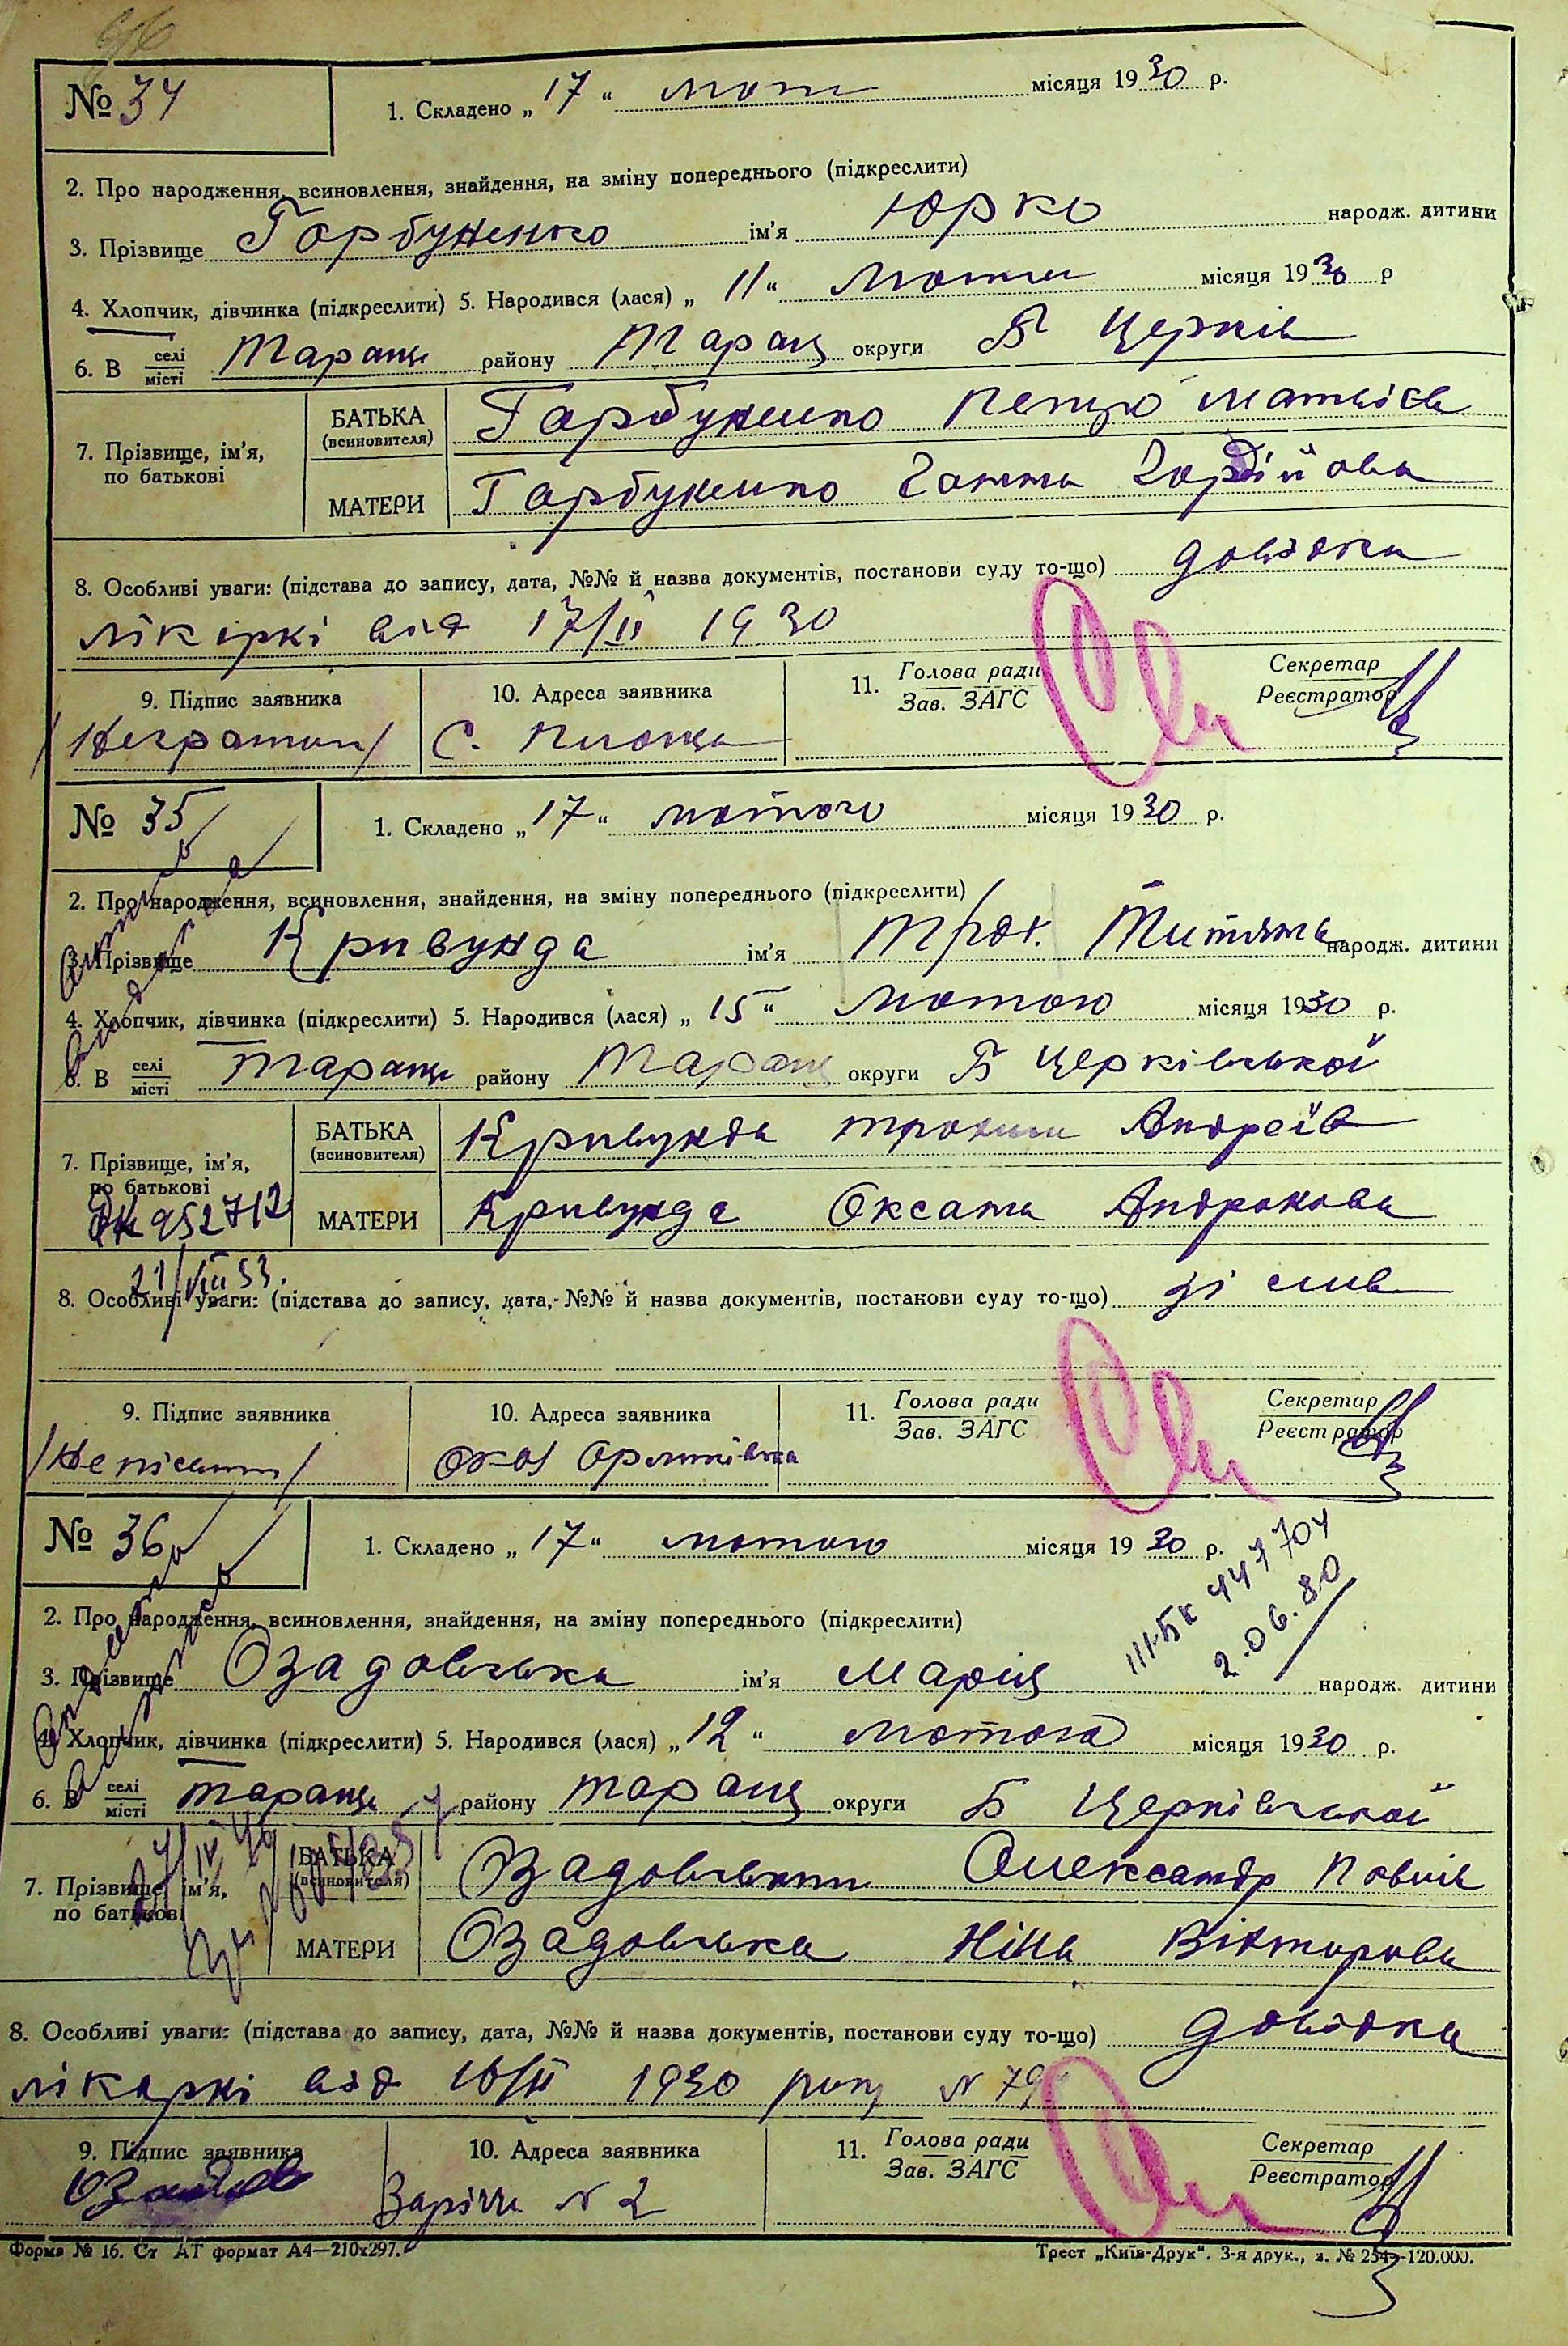 № 34
1. Складено „17“ лют місяця 1930 р.
2. Про народження, всиновлення, знайдення, на зміну попереднього (підкреслити)
3. Прізвище Горбуненко ім'я Юрко народж. дитини
4. Хлопчик, дівчинка (підкреслити) 5. Народився (лася) „11“ місяця 1930 р
6. В селі місті Тараще району Таращ округи Б Церків
7. Прізвище, ім'я, по батькові
БАТЬКА (всиновителя) Горбуненко Петро Матвієв
МАТЕРИ Горбуненко Ганна Гордійова
8. Особливі уваги: (підстава до запису, дата, №№ й назва документів, постанови суду то-що) довідка
лікаркі від 17/II 1930
9. Підпис заявника 10. Адреса заявника 11. Голова ради Зав. ЗАГС Секретар Реєстратор
/Неграмотн/ с.
№ 35
1. Складено „17“ лютого місяця 1930 р.
2. Про народження, всиновлення, знайдення, на зміну попереднього (підкреслити)
3. Прізвище Кривунда ім'я народж. дитини
4. Хлопчик, дівчинка (підкреслити) 5. Народився (лася) „15“ лютого місяця 1930 р.
6. В селі місті Тараще району Таращ округи Б Церківської
7. Прізвище, ім'я, по батькові
БАТЬКА (всиновителя) Кривунда Трохим Андреїв
МАТЕРИ Кривунда Оксана Андронова
952712
21/VIII 53.
8. Особливі уваги: (підстава до запису, дата, №№ й назва документів, постанови суду то-що) зі слів
9. Підпис заявника 10. Адреса заявника 11. Голова ради Зав. ЗАГС Секретар Реєстратор
/Неписьмен/
№ 36
1. Складено „17“ лютого місяця 1930 р.
III-БК 447704
2.06.80
2. Про народження, всиновлення, знайдення, на зміну попереднього (підкреслити)
3. Прізвище Озадовська ім'я Марія народж. дитини
4. Хлопчик, дівчинка (підкреслити) 5. Народився (лася) „12“ лютого місяця 1930 р.
6. В селі місті Тараще району Таращ округи Б Церківської
7. Прізвище, ім'я, по батькові
БАТЬКА (всиновителя) Озадовський Олександр Павлів
МАТЕРИ Озадовська Ніна Вікторова
8. Особливі уваги: (підстава до запису, дата, №№ й назва документів, постанови суду то-що) довідка
лікаркі від 16/II 1930 року N 79
9. Підпис заявника 10. Адреса заявника 11. Голова ради Зав. ЗАГС Секретар Реєстратор
Заріччя N 2
Форма № 16. Ст АТ формат А4—210х297. Трест „Київ-Друк“. 3-я друк., з. № 254—120.000.